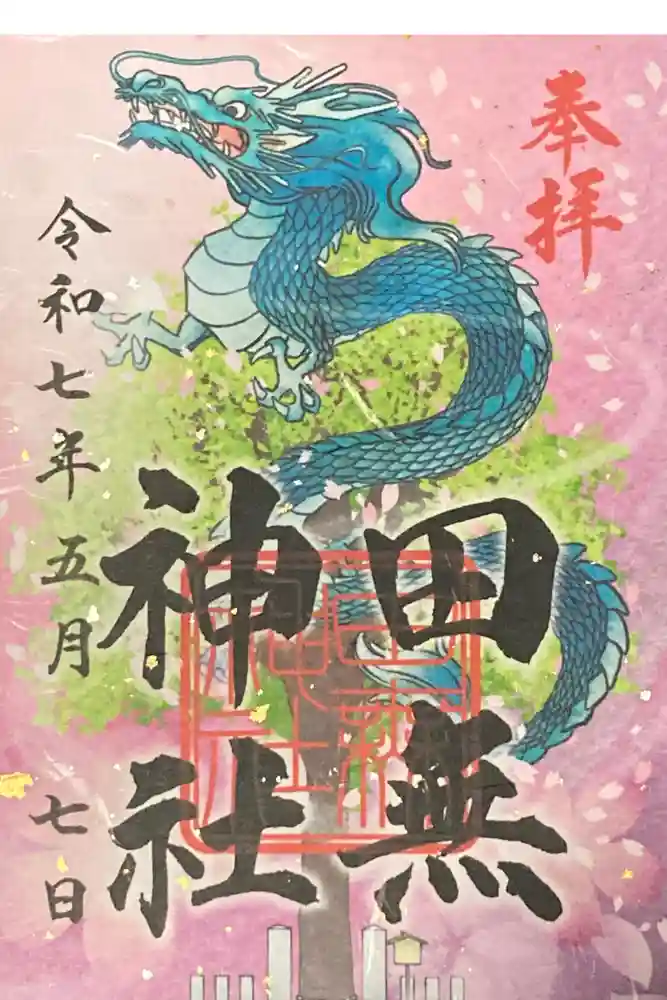 奉拝
田無
神社
令和七年五月七日